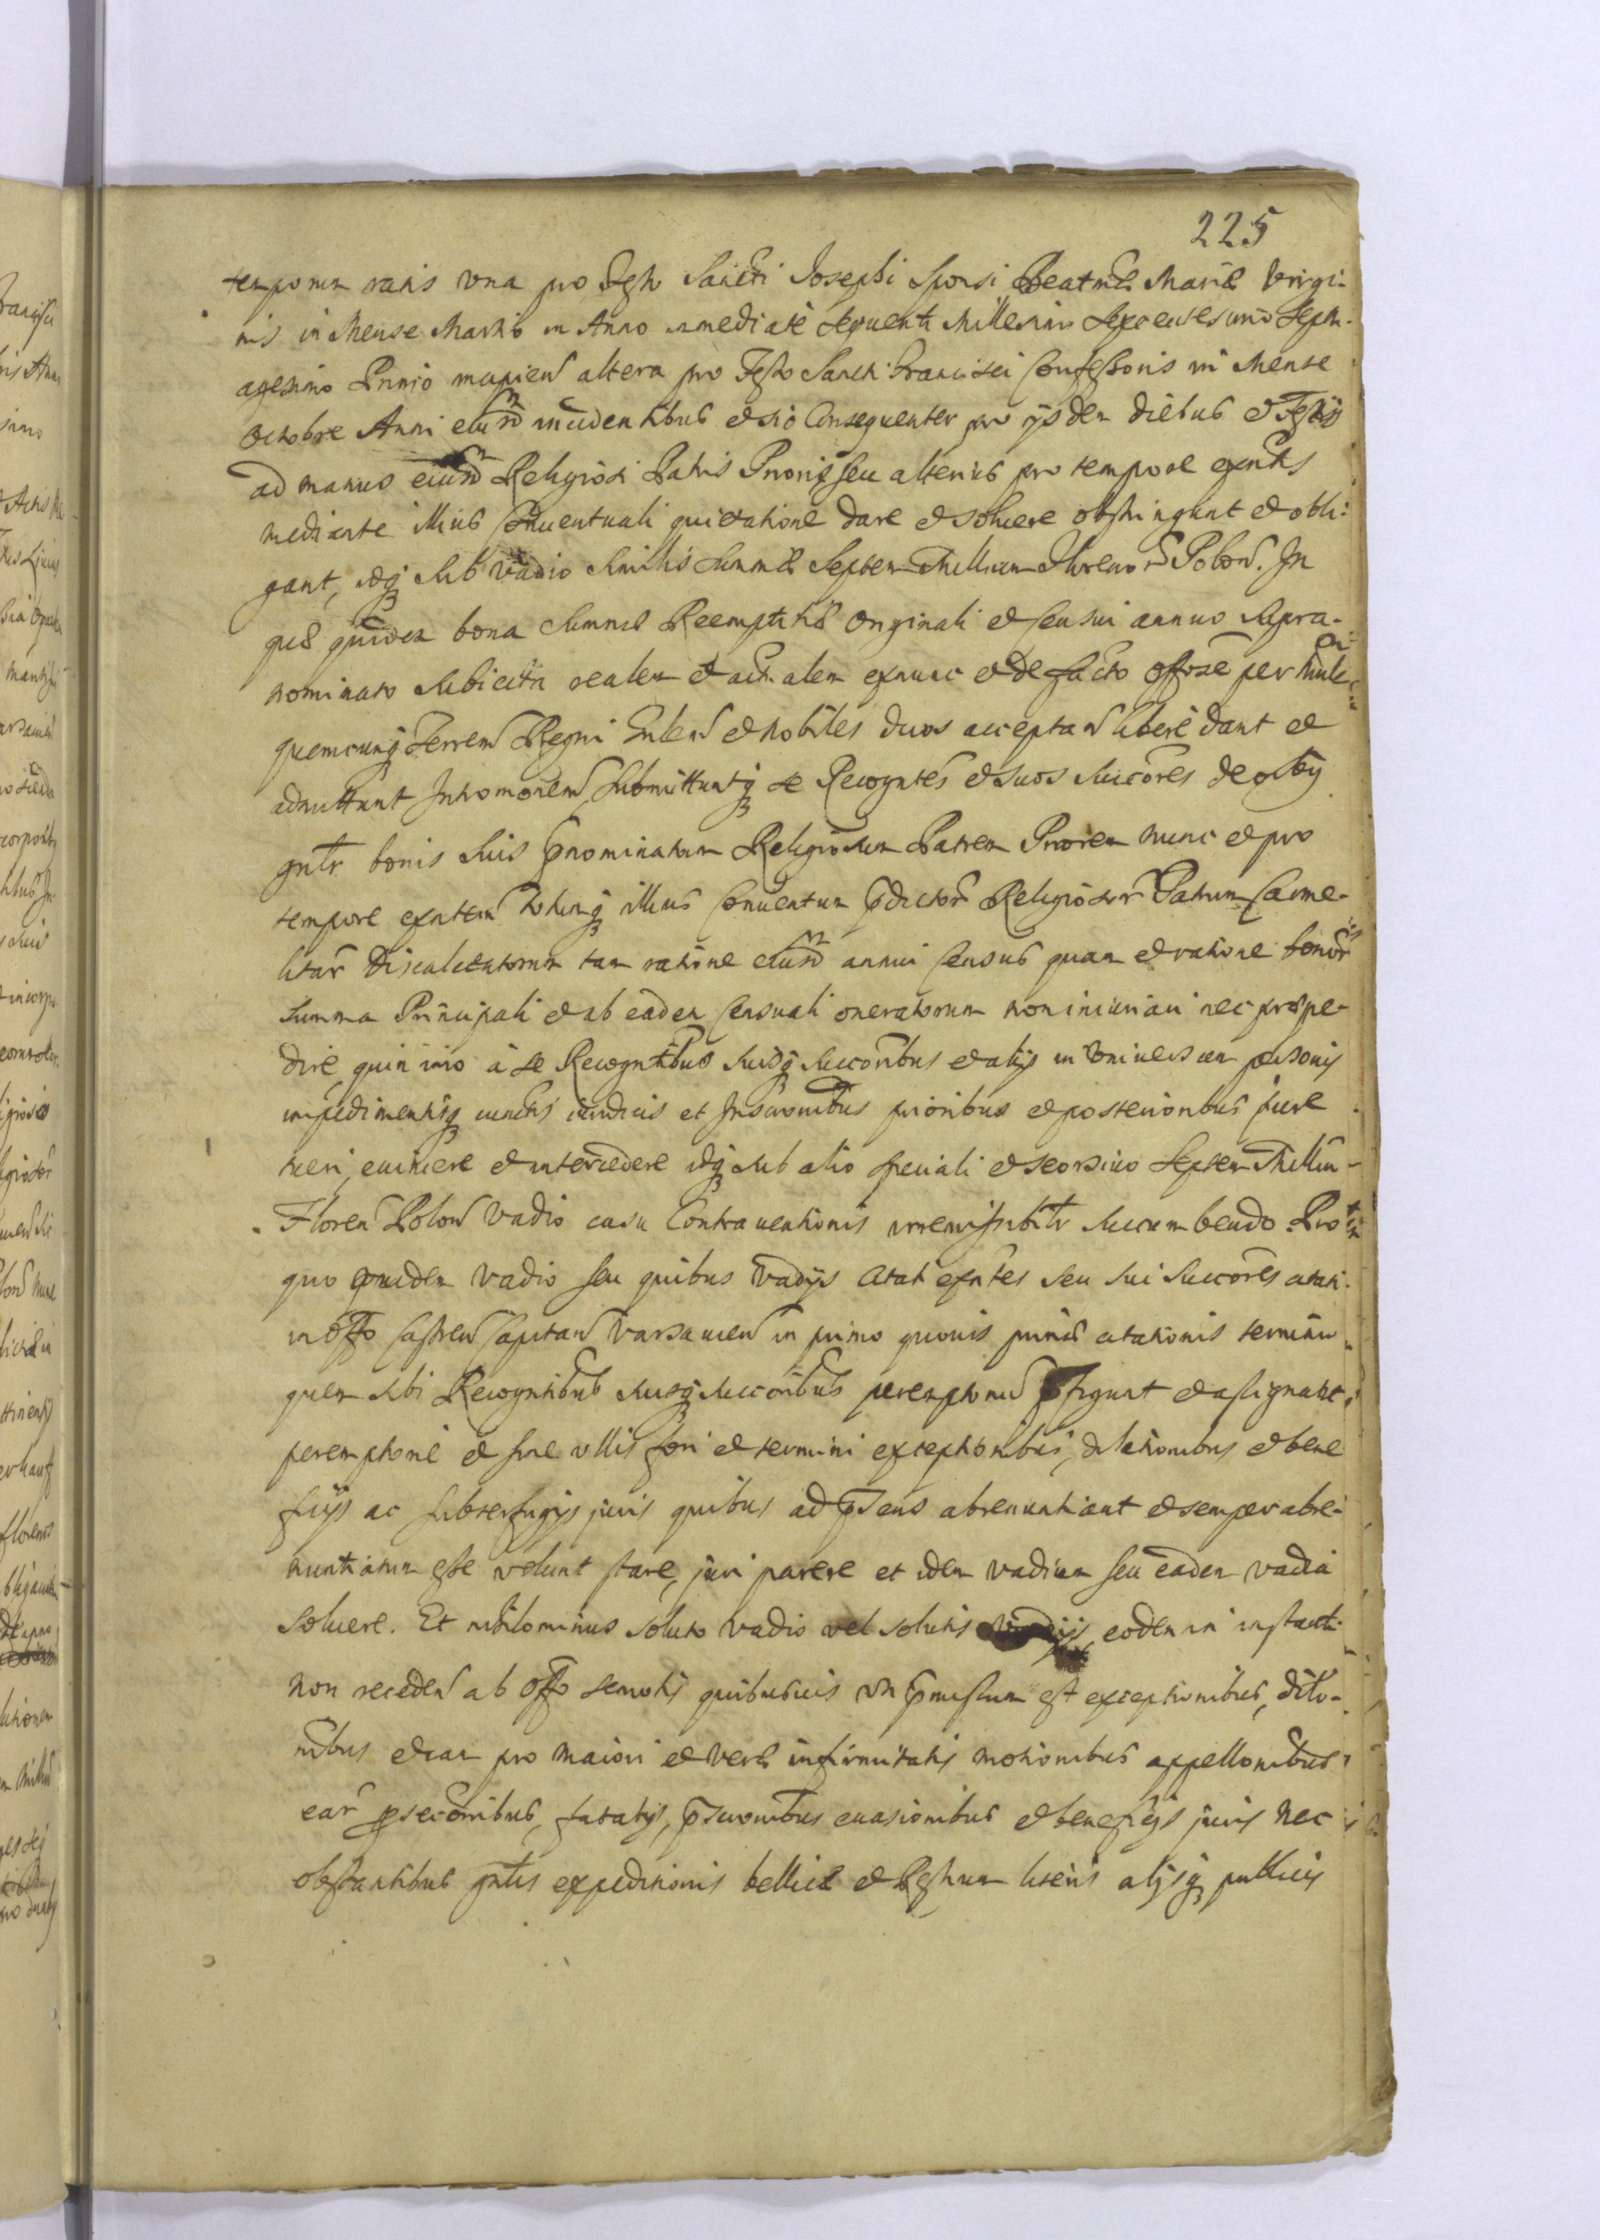 225
temporum ratis vna pro Festo Sancti Josephi Sponsi Beatmae Mariae Virgi-
nis in Mense Martio in Anno immediatè sequenti Millesimo Sexcentesimo Septu-
agesimo Primo altera pro Festo Sancti Francisci Confessoris in Mense
Octobre Anni eiusd incidentibus et sic Consequenter pro ijsdem diebus et Festis
ad manus eiusd Religiosi Patris Prioris seu alterius pro tempore exntis
mediante illius Conuentuali quietatione dare et soluere obstringunt et obli-
gant, idq sub vadio similis summae Septem Millium Florenor Polon. In
quae quidem bona summae Reemptitiae Originali et censui annuo supra-
nominato subiecta realem et actualem exnunc et de facto offose per Mnle
quemcunq Terren Regni Gnlem et Nobiles duos acceptan liberè dant et
admittunt Intromonem, submittuntq se Recogntes et suos succores de oibq
gntr bonis suis pnominatum Religiosum Patrem Priorem nunc et pro
tempore exntem totumq illius Conuentum pdictor Religiosor Patrum Carme-
litar Discalceatorum tam ratione eiusd annui Census quam et ratione bonor
summa Principali et ab eadem Censuali oneratorum non iniuriari nec praepe-
dire, quin imo à se Recogntibus suisq succoribus et alijs in vniuersum personis
impedimentisq cunctis iuridicis et Inscronibus prioribus et posterioribus iure
tueri, euincere et intercedere idq sub alio speciali et seorsiuo Septem Millium
Floren Polon vadio casu Contrauentionis irremissibiltr succumbendo. Pro
quo quidem vadio seu quibus vadijs citati exntes seu sui succores citati
in offo Castren Capitan Varsauien in primo quouis primae citationis termino
quem sibi Recogntibus suisq succoribus peremptorium pfigunt et assignant
peremptoriè et sine vllis fori et termini exceptionibus, dilationibus et bene
ficijs ac subterfugijs juris quibus ad psens abrenuntiant et semper abre-
nuntiatum esse volunt stare, juri parere et idem vadium seu eadem vadia
soluere. Et nihilominus soluto vadio vel solutis vadijs eodem in instanti
non receden ab offo remotis quibusuis vti pmissum est exceptionibus, dilo-
nibus etiam pro maiori et vera infirmitatis motionibus appellonibus
ear psecoribus, fatalijs, pscronibus euasionibus et beneficijs juris nec
obstantibus gntis expeditionis bellicae et Pestium literis alijsq publicis